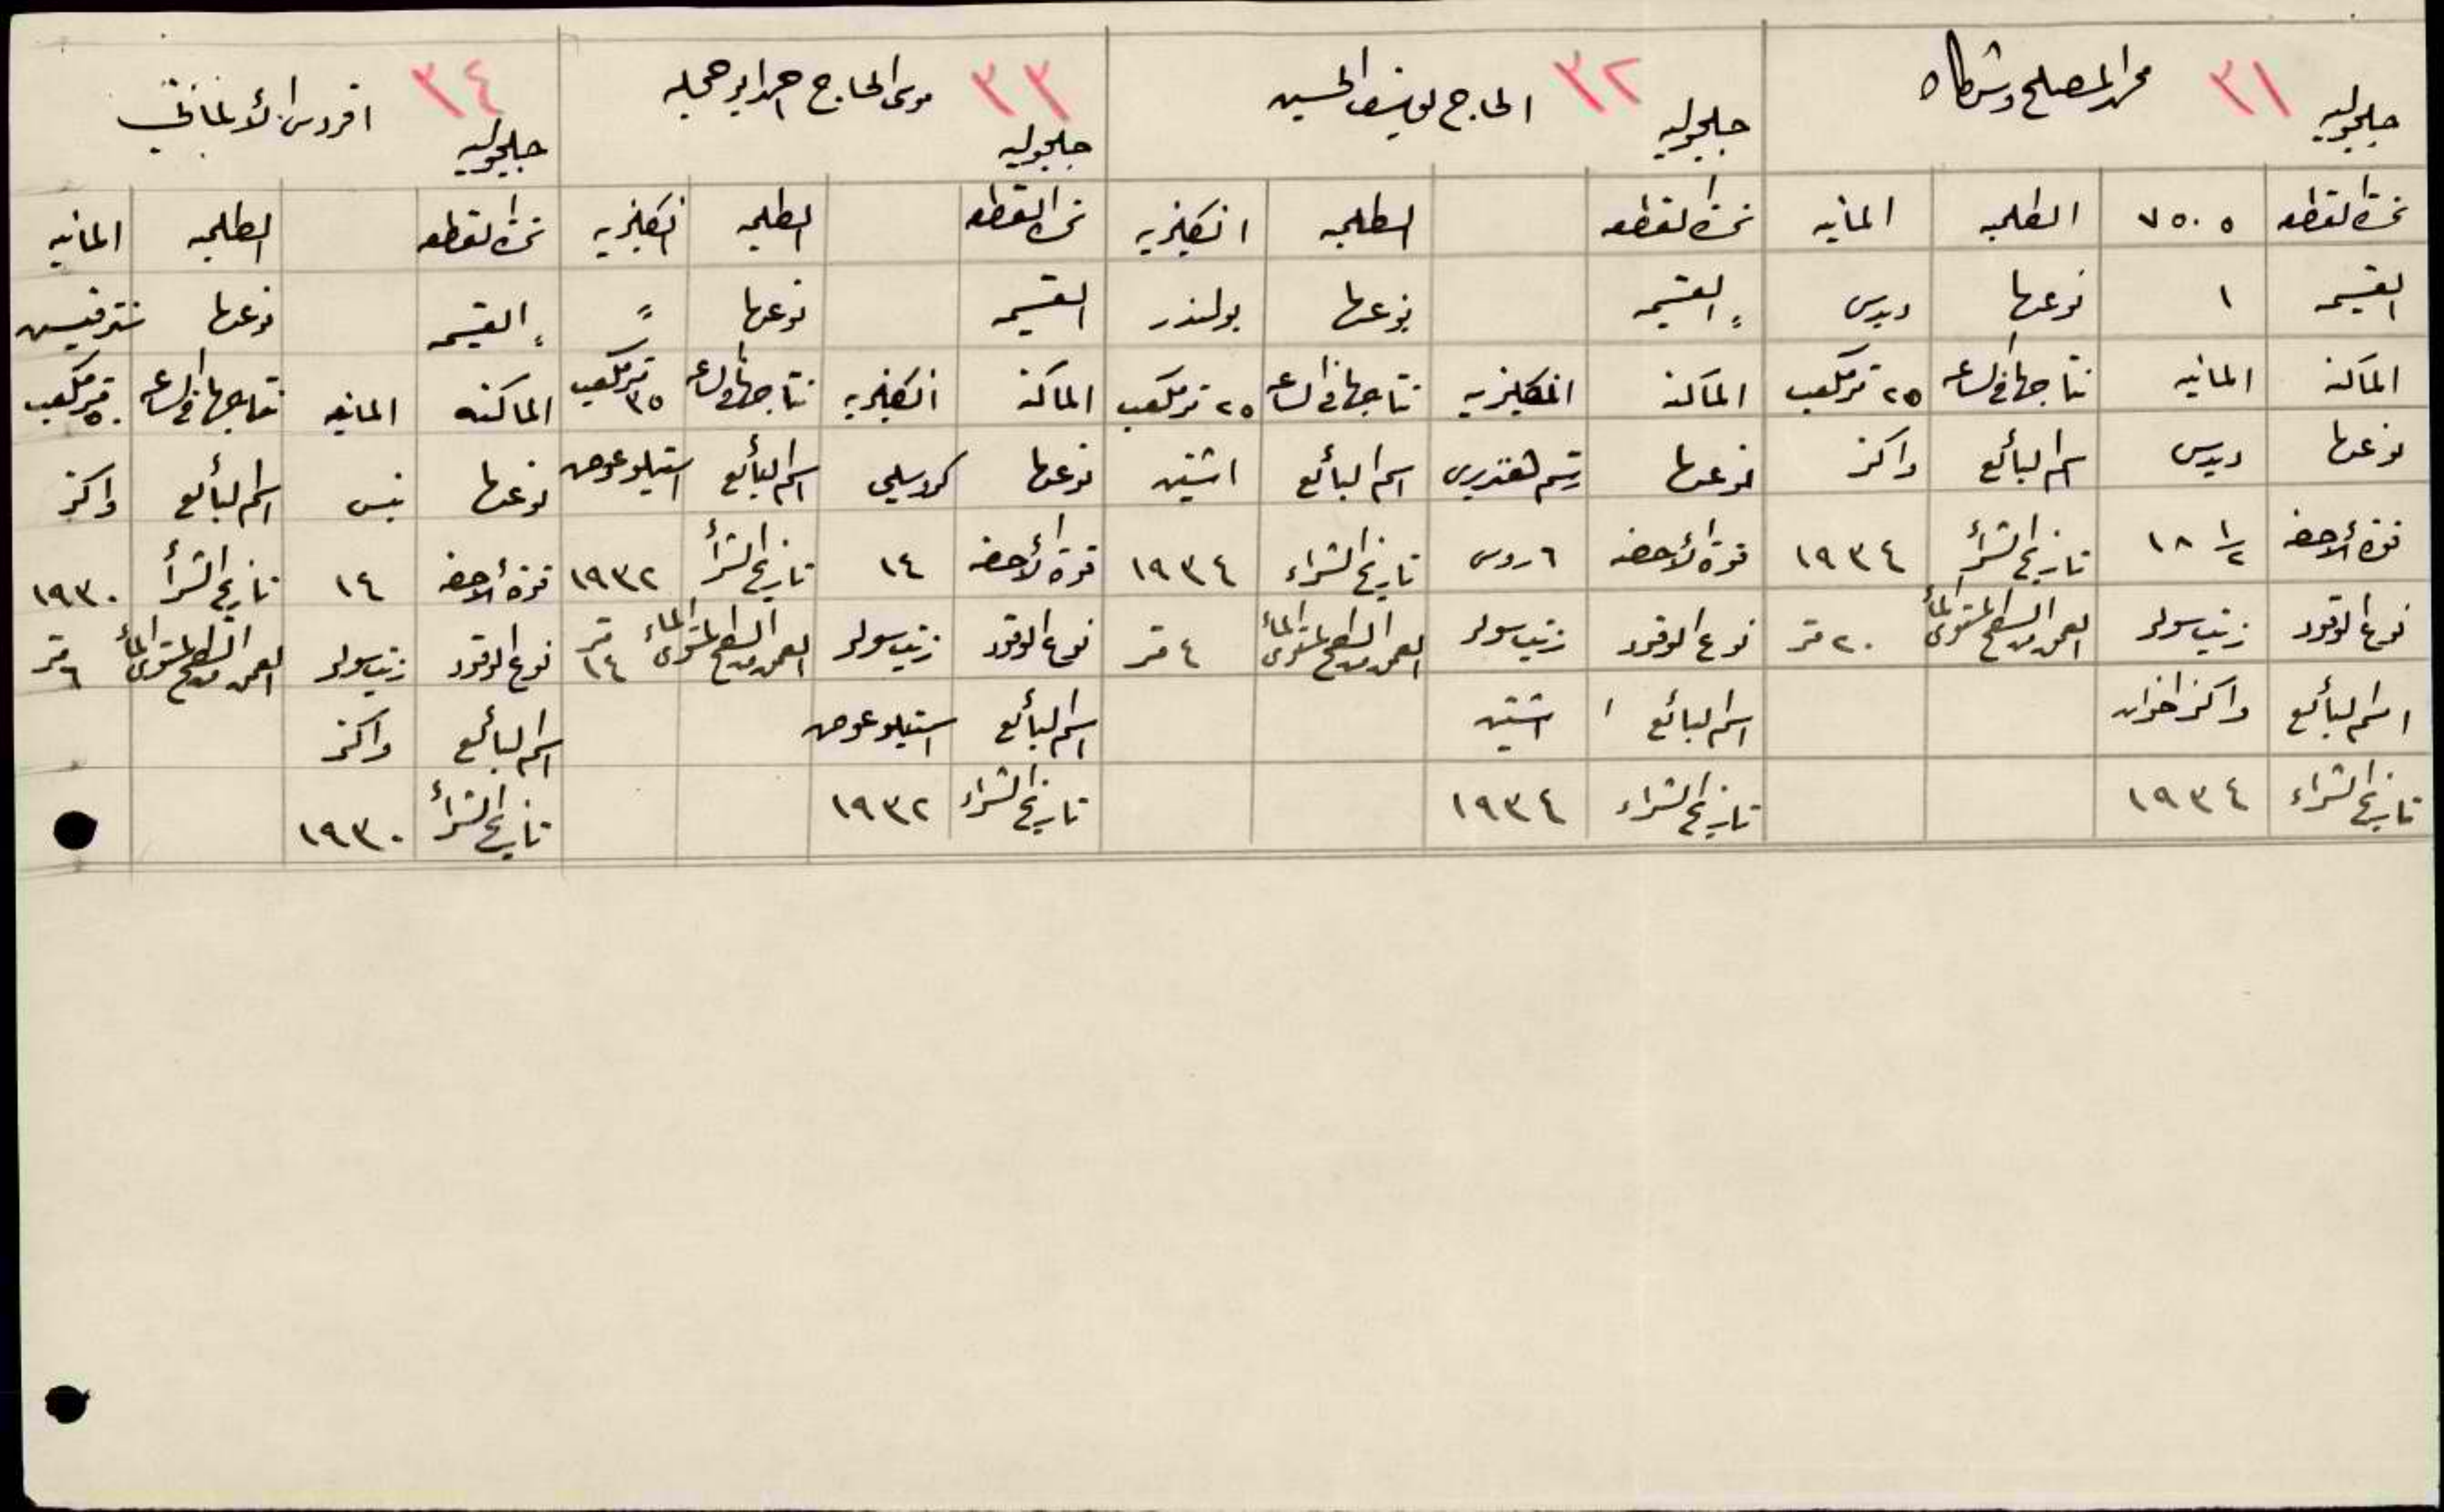 جلجوليه ٣١ محمد المصلح وشركاه
نمرة القطعه ٧٥٠٥ الطلمبه المانيه
القسيمه ١ نوعها ديدس
الماكنة المانيه نتاجها في الساعه ٢٥ متر مكعب
نوعها ديدس اسم البائع واكنر
قوة الأحصنه ١٨ ١/٢ تاريخ الشرأ ١٩٣٤
نوع الوقود زيت سولر العمق من السطح لمستوى المأ ٢٠ متر
اسم البائع واكنر اخوان
تاريخ الشراء ١٩٣٤
جلجوليه ٣٢ الحاج يوسف الحسين
نمرة القطعه الطلمبه انكليزيه
القسيمه نوعها بولندر
الماكنة انكليزيه نتاجها في الساعه ٢٥ متر مكعب
نوعها رستم هندبري اسم البائع اشتين
قوة الأحصنه ٦ روس تاريخ الشراء ١٩٣٤
نوع الوقود زيت سولر العمق من السطح لمستوى المأ ٤ متر
اسم البائع اشتين
تاريخ الشراء ١٩٣٤
جلجوليه ٣٣ موسى الحاج احمد ابو حجله
نمرة القطعه الطلمبه انكليزيه
القسيمه نوعها "
الماكنة انكليزيه نتاجها في الساعه ٣٥ متر مكعب
نوعها كروسلي اسم البائع استيلو عوض
قوة الأحصنه ١٤ تاريخ الشرأ ١٩٣٢
نوع الوقود زيت سولر العمق من السطح لمستوى الماء ١٤ متر
اسم البائع استيلو عوض
تاريخ الشراء ١٩٣٢
جلجوليه ٣٤ الألماني
نمرة القطعه الطلمبه المانيه
القسيمه نوعها
الماكنه المانيه نتاجها في الساعه ٥٠ متر مكعب
نوعها اسم البائع واكنر
قوة الأحصنه ١٤ تاريخ الشرأ ١٩٣٠
نوع الوقود زيت سولر العمق من السطح لمستوى المأ ٦ متر
اسم البائع واكنر
تاريخ الشرأ ١٩٣٠